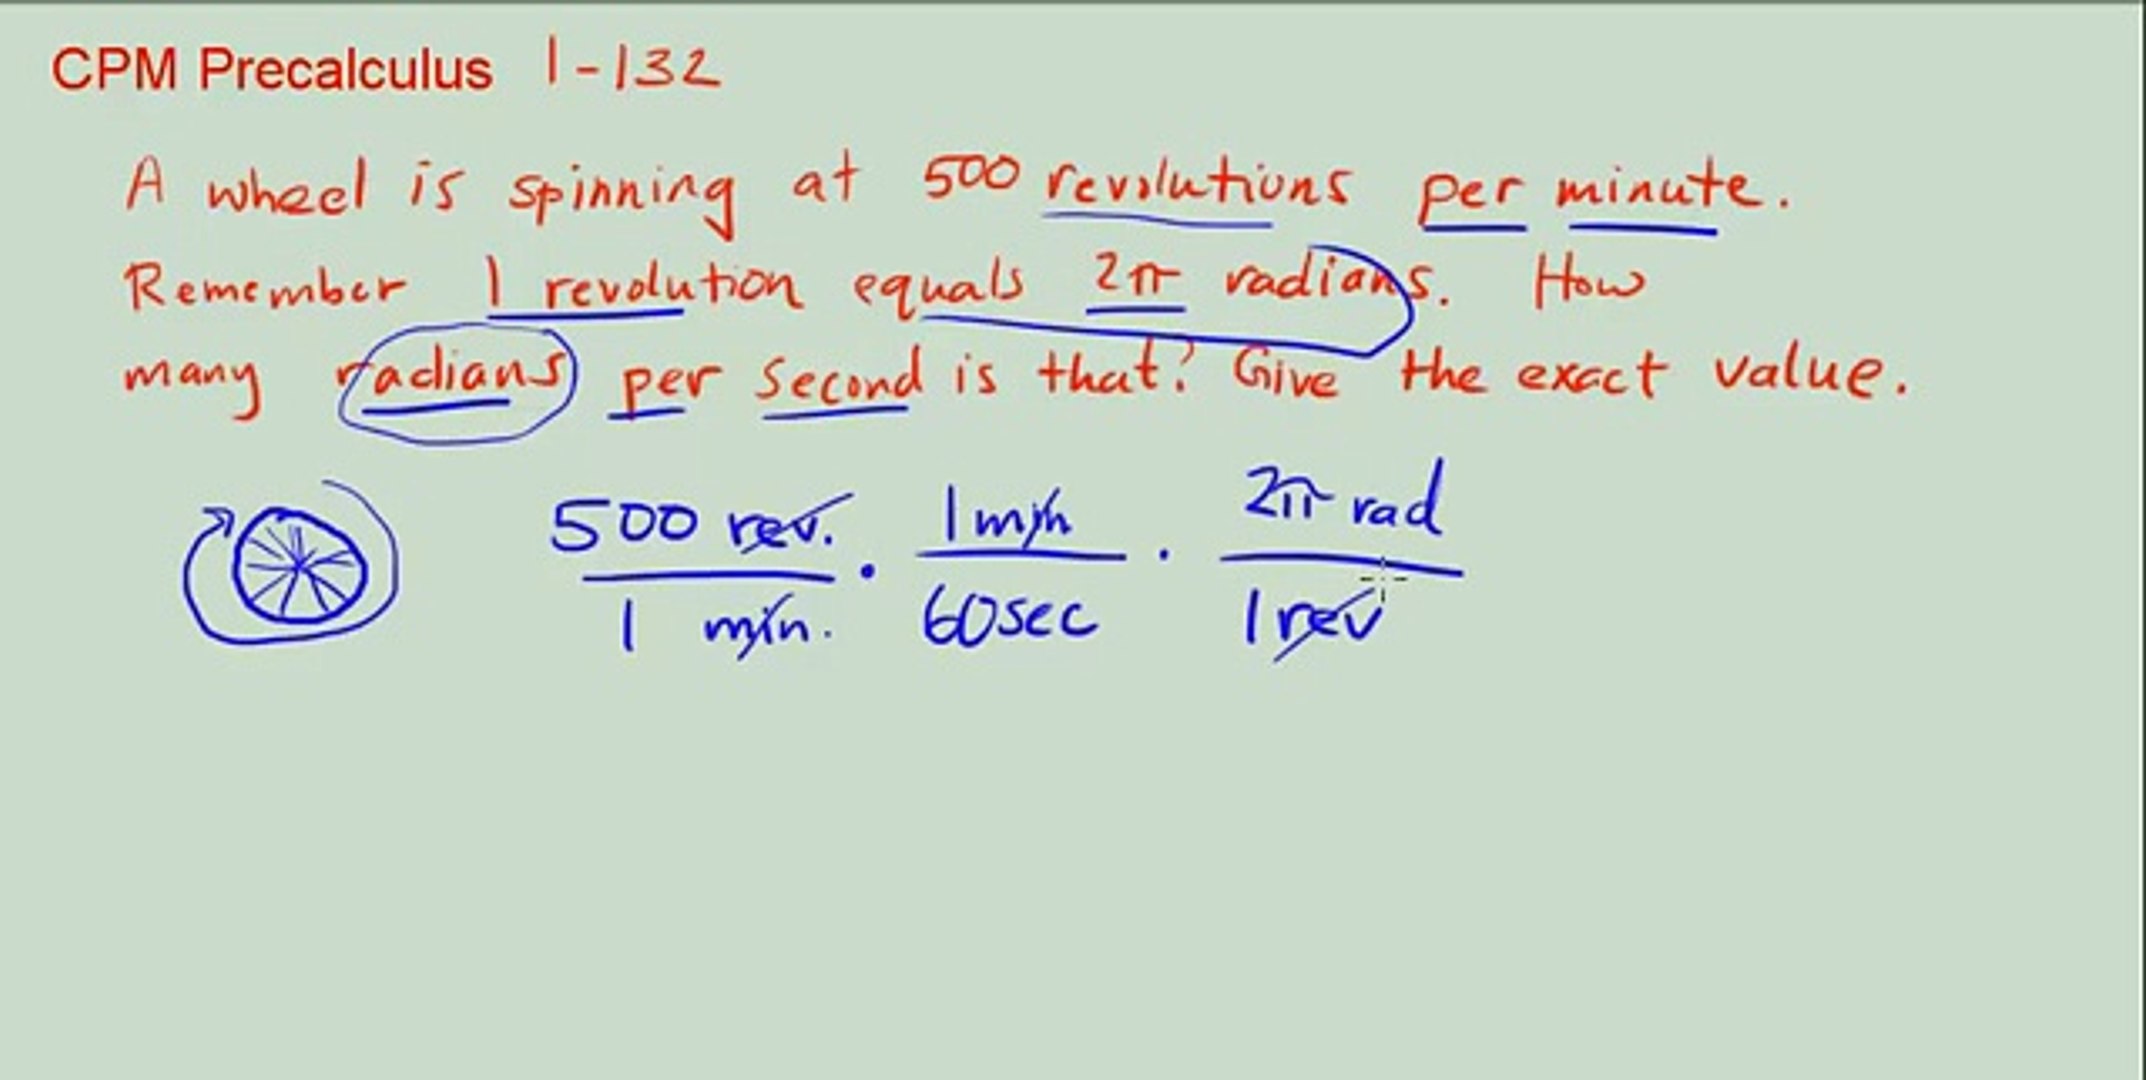 CPM Precalculus 1-132
A wheel is spinning at 500 revolutions per minute.
Remember 1 revolution equals 2π radians. How
many radians per second is that? Give the exact value.
500 rev. 1 min 2π rad
1 min. · 60 sec · 1 rev